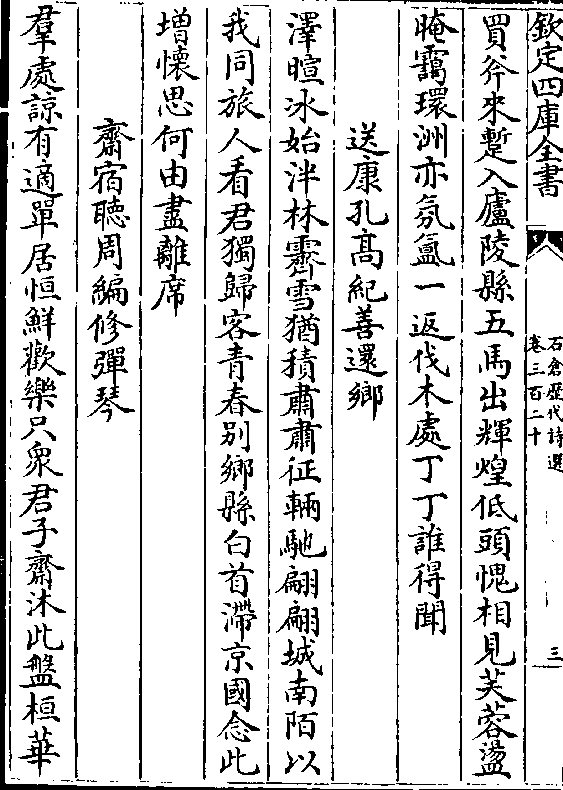 欽定四庫全書
石倉歷代詩選
卷三百二十
三
買斧來蹔入廬陵縣五馬出輝煌低頭愧相見芙蓉盪
晻靄環洲亦氛氳一返伐木處丁丁誰得聞
送康孔高紀善還鄉
澤暄冰始泮林霽雪猶積肅肅征輛馳翩翩城南陌以
我同旅人看君獨歸客青春别鄉縣白首滯京國念此
增懷思何由盡離席
齋宿聽周編修彈琴
羣處諒有適單居恒鮮歡樂只衆君子齋沐此盤桓華